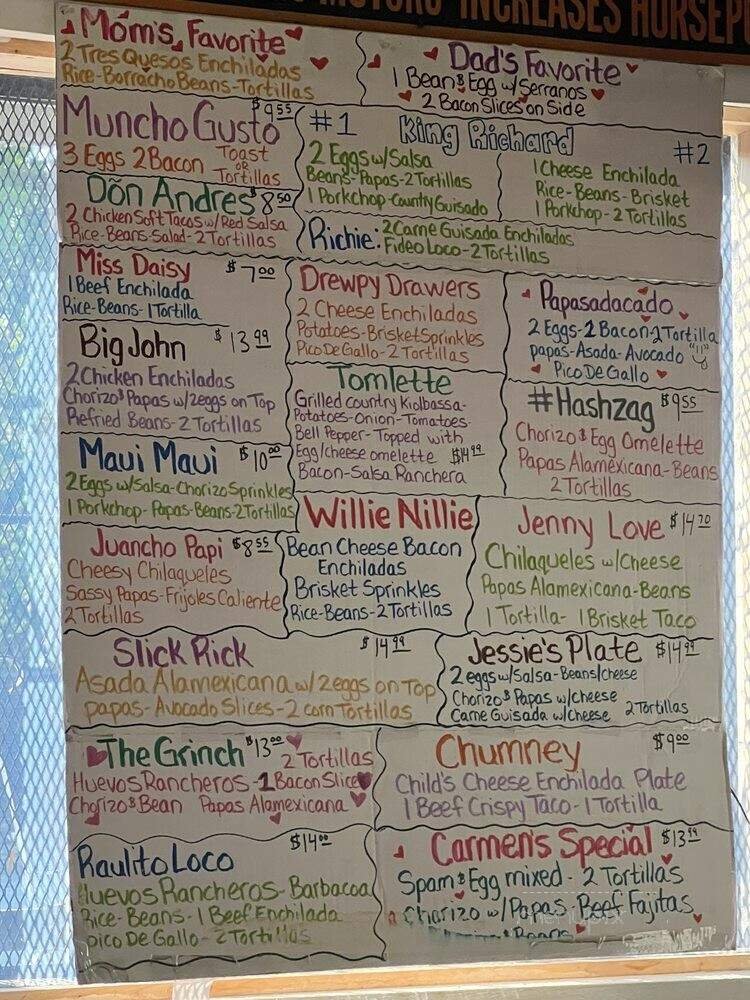 MOTORS INCREASES HORSEP
Mom's Favorite
2 Tres Quesos Enchiladas
Rice-Borracho Beans-Tortillas
Dad's Favorite
1 Bean & Egg w/Serranos
2 Bacon Slices on Side
Muncho Gusto $9.55
3 Eggs 2 Bacon Toast
or
Tortillas
#1 King Richard #2
2 Eggs w/Salsa
Beans-Papas-2 Tortillas
1 Porkchop-Country Guisado
1 Cheese Enchilada
Rice-Beans-Brisket
1 Porkchop-2 Tortillas
Dõn Andres $8.50
2 Chicken Soft Tacos w/Red Salsa
Rice-Beans-Salad-2 Tortillas
Richie: 2 Carne Guisada Enchiladas
Fideo Loco-2 Tortillas
Miss Daisy $7.00
1 Beef Enchilada
Rice-Beans-1 Tortilla
Drewpy Drawers
2 Cheese Enchiladas
Potatoes-Brisket Sprinkles
Pico De Gallo-2 Tortillas
Papasadacado
2 Eggs-2 Bacon-2 Tortilla
papas-Asada-Avocado "11"
Pico De Gallo
Big John $13.99
2 Chicken Enchiladas
Chorizo & Papas w/2eggs on Top
Refried Beans-2 Tortillas
Tomlette
Grilled Country Kiolbassa-
Potatoes-Onion-Tomatoes-
Bell Pepper-Topped with
Egg/cheese omelette $14.99
Bacon-Salsa Ranchera
#Hashzag $9.55
Chorizo & Egg Omelette
Papas Alaméxicana-Beans
2 Tortillas
Maui Maui $10.00
2 Eggs w/Salsa-Chorizo Sprinkles
1 Porkchop-Papas-Beans-2 Tortillas
Willie Nillie
Bean Cheese Bacon
Enchiladas
Brisket Sprinkles
Rice-Beans-2 Tortillas
Jenny Love $14.20
Chilaqueles w/Cheese
Papas Alamexicana-Beans
1 Tortilla-1 Brisket Taco
Juancho Papi $8.55
Cheesy Chilaqueles
Sassy Papas-Frijoles Caliente
2 Tortillas
Slick Rick $14.99
Asada Alamexicana w/2eggs on Top
papas-Avocado Slices-2 corn Tortillas
Jessie's Plate $14.99
2 eggs w/Salsa-Beans/cheese
Chorizo & Papas w/cheese
Carne Guisada w/cheese 2 Tortillas
The Grinch $13.00 2 Tortillas
Huevos Rancheros-1 Bacon Slice
Chorizo & Bean Papas Alamexicana
Chumney $9.00
Child's Cheese Enchilada Plate
1 Beef Crispy Taco-1 Tortilla
Raulito Loco $14.00
Huevos Rancheros-Barbacoa
Rice-Beans-1 Beef Enchilada
pico De Gallo-2 Tortillas
Carmen's Special $13.99
Spam & Egg mixed-2 Tortillas
Chorizo w/Papas-Beef Fajitas
& Beans